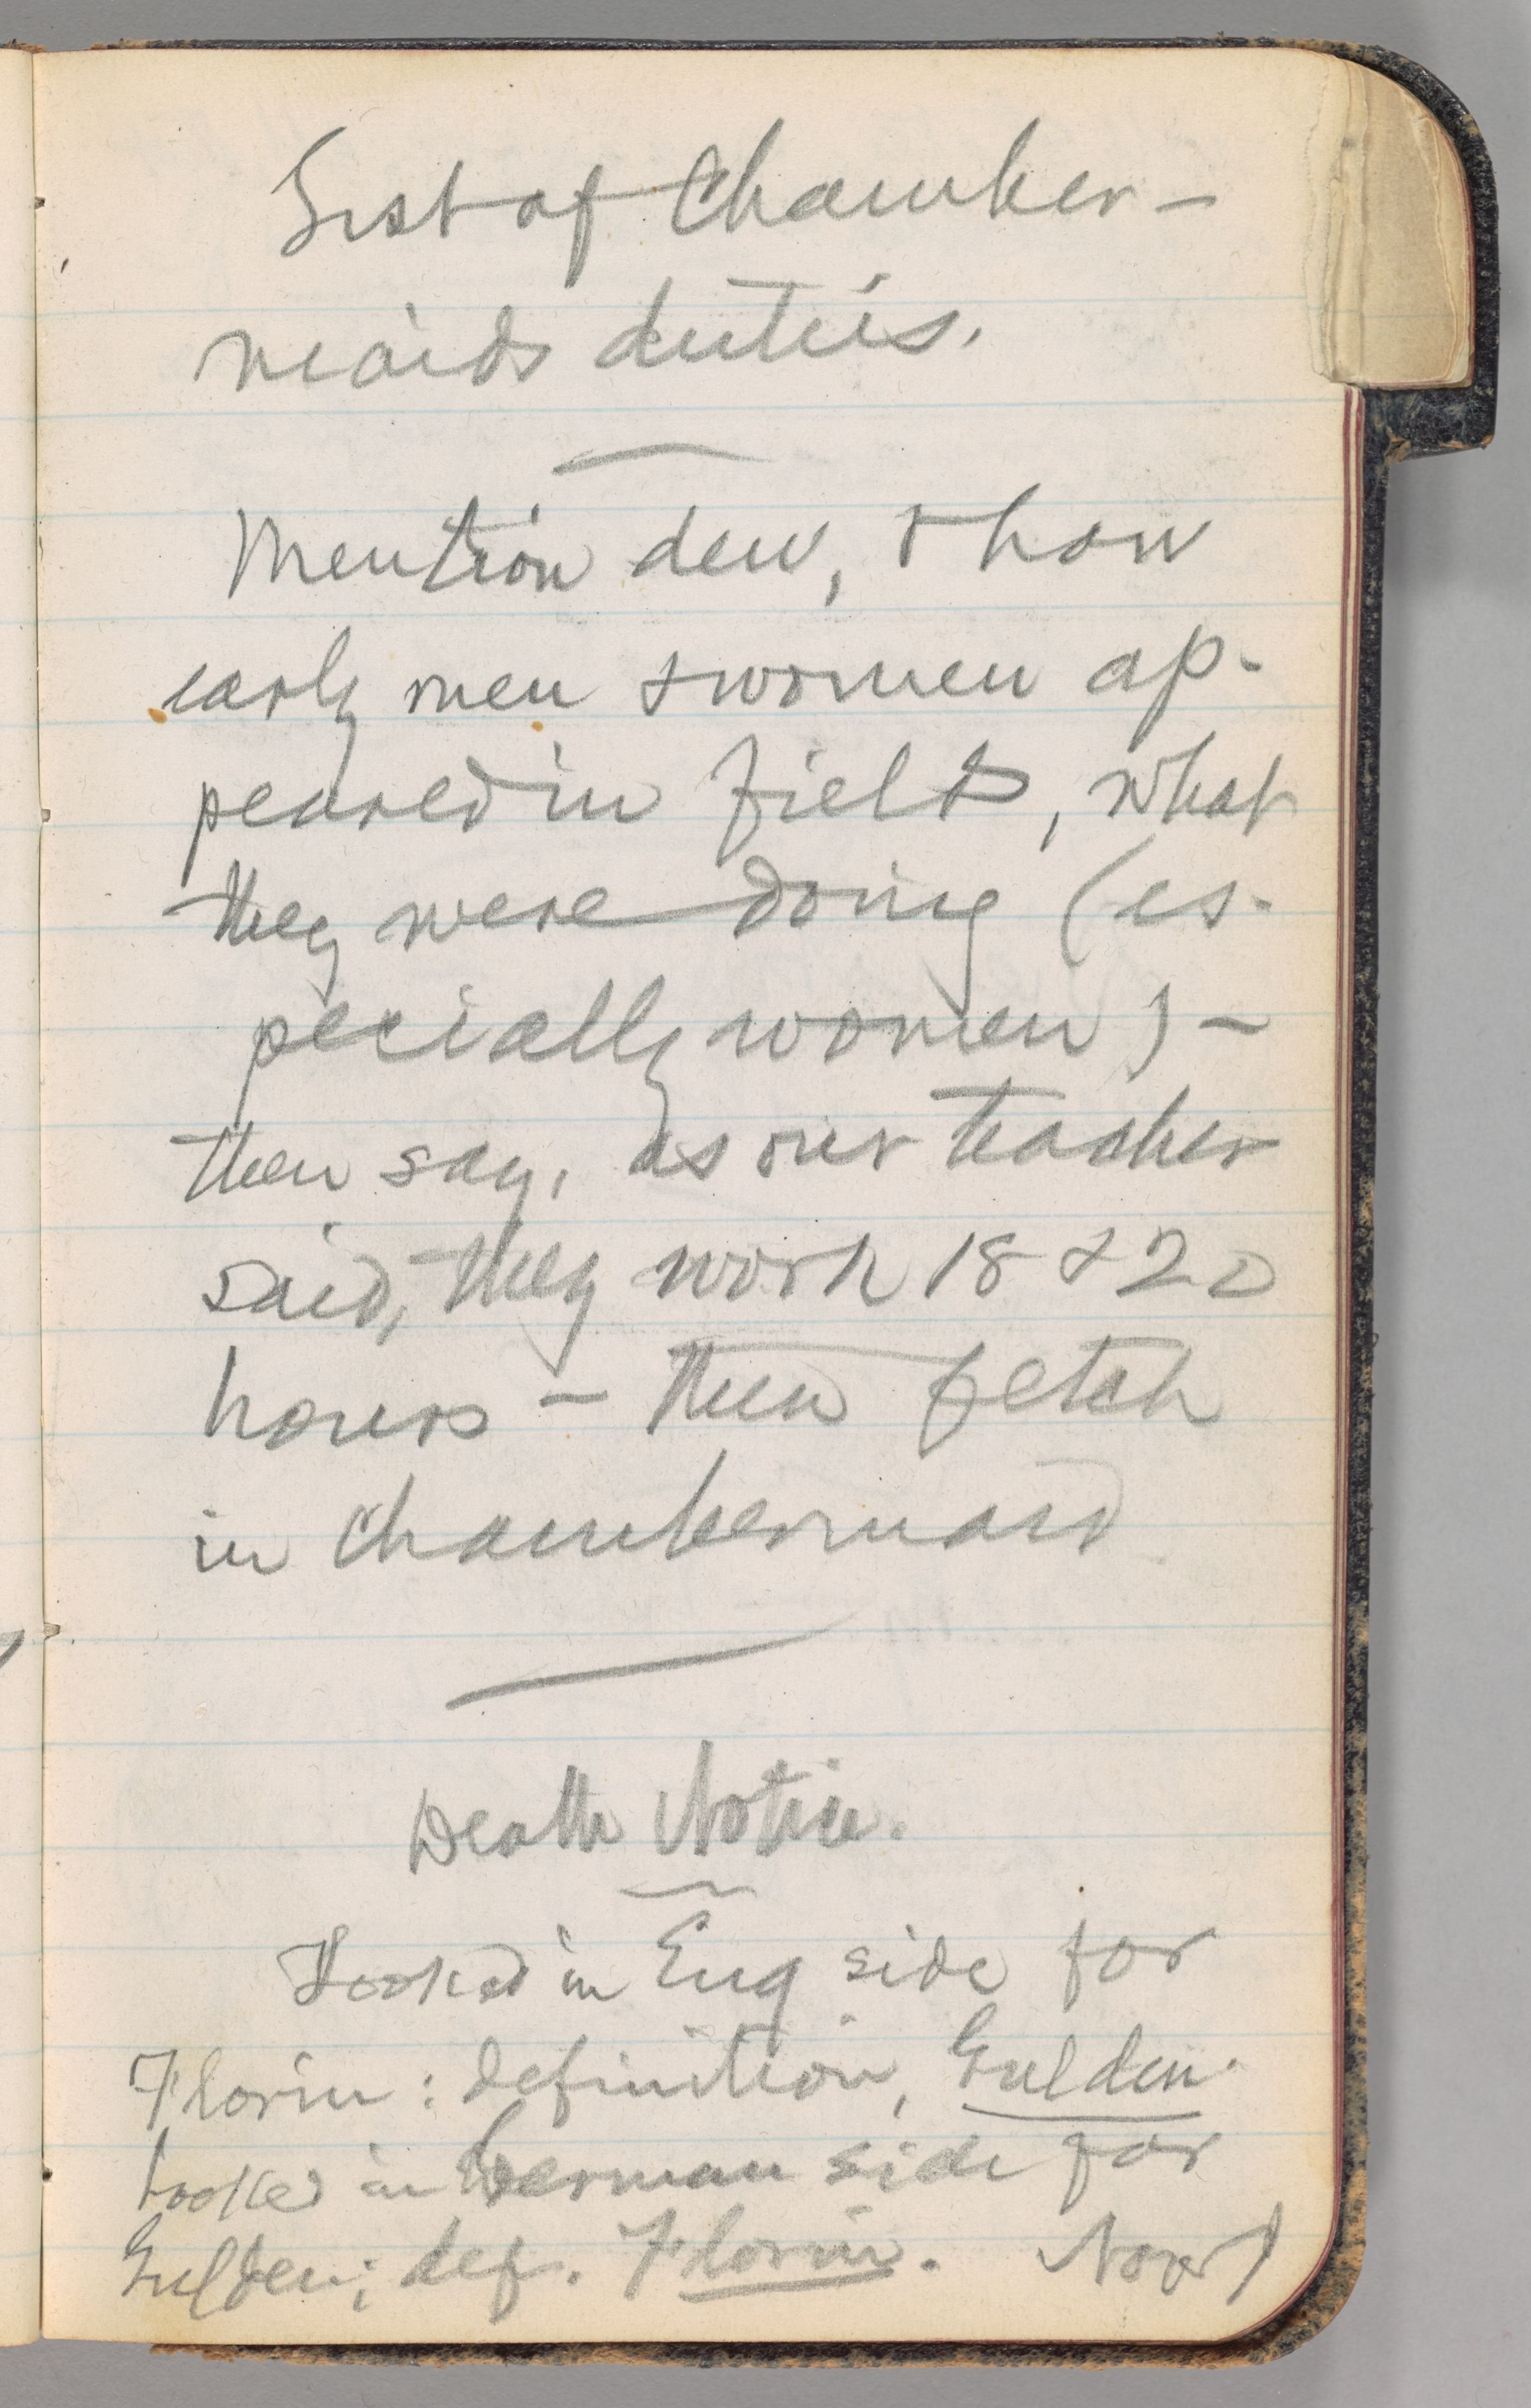 List of Chamber-
maids duties.
Mention dew, & how
early men & women ap-
peared in field, what
they were doing (es-
pecially women) -
then say, as our teacher
said, they work 18 & 20
hours - then fetch
in chambermaid
Death Notice.
Looked in Eng side for
Florin: definition, Gulden.
Looked in German side for
Gulden; def. Florin. Now I